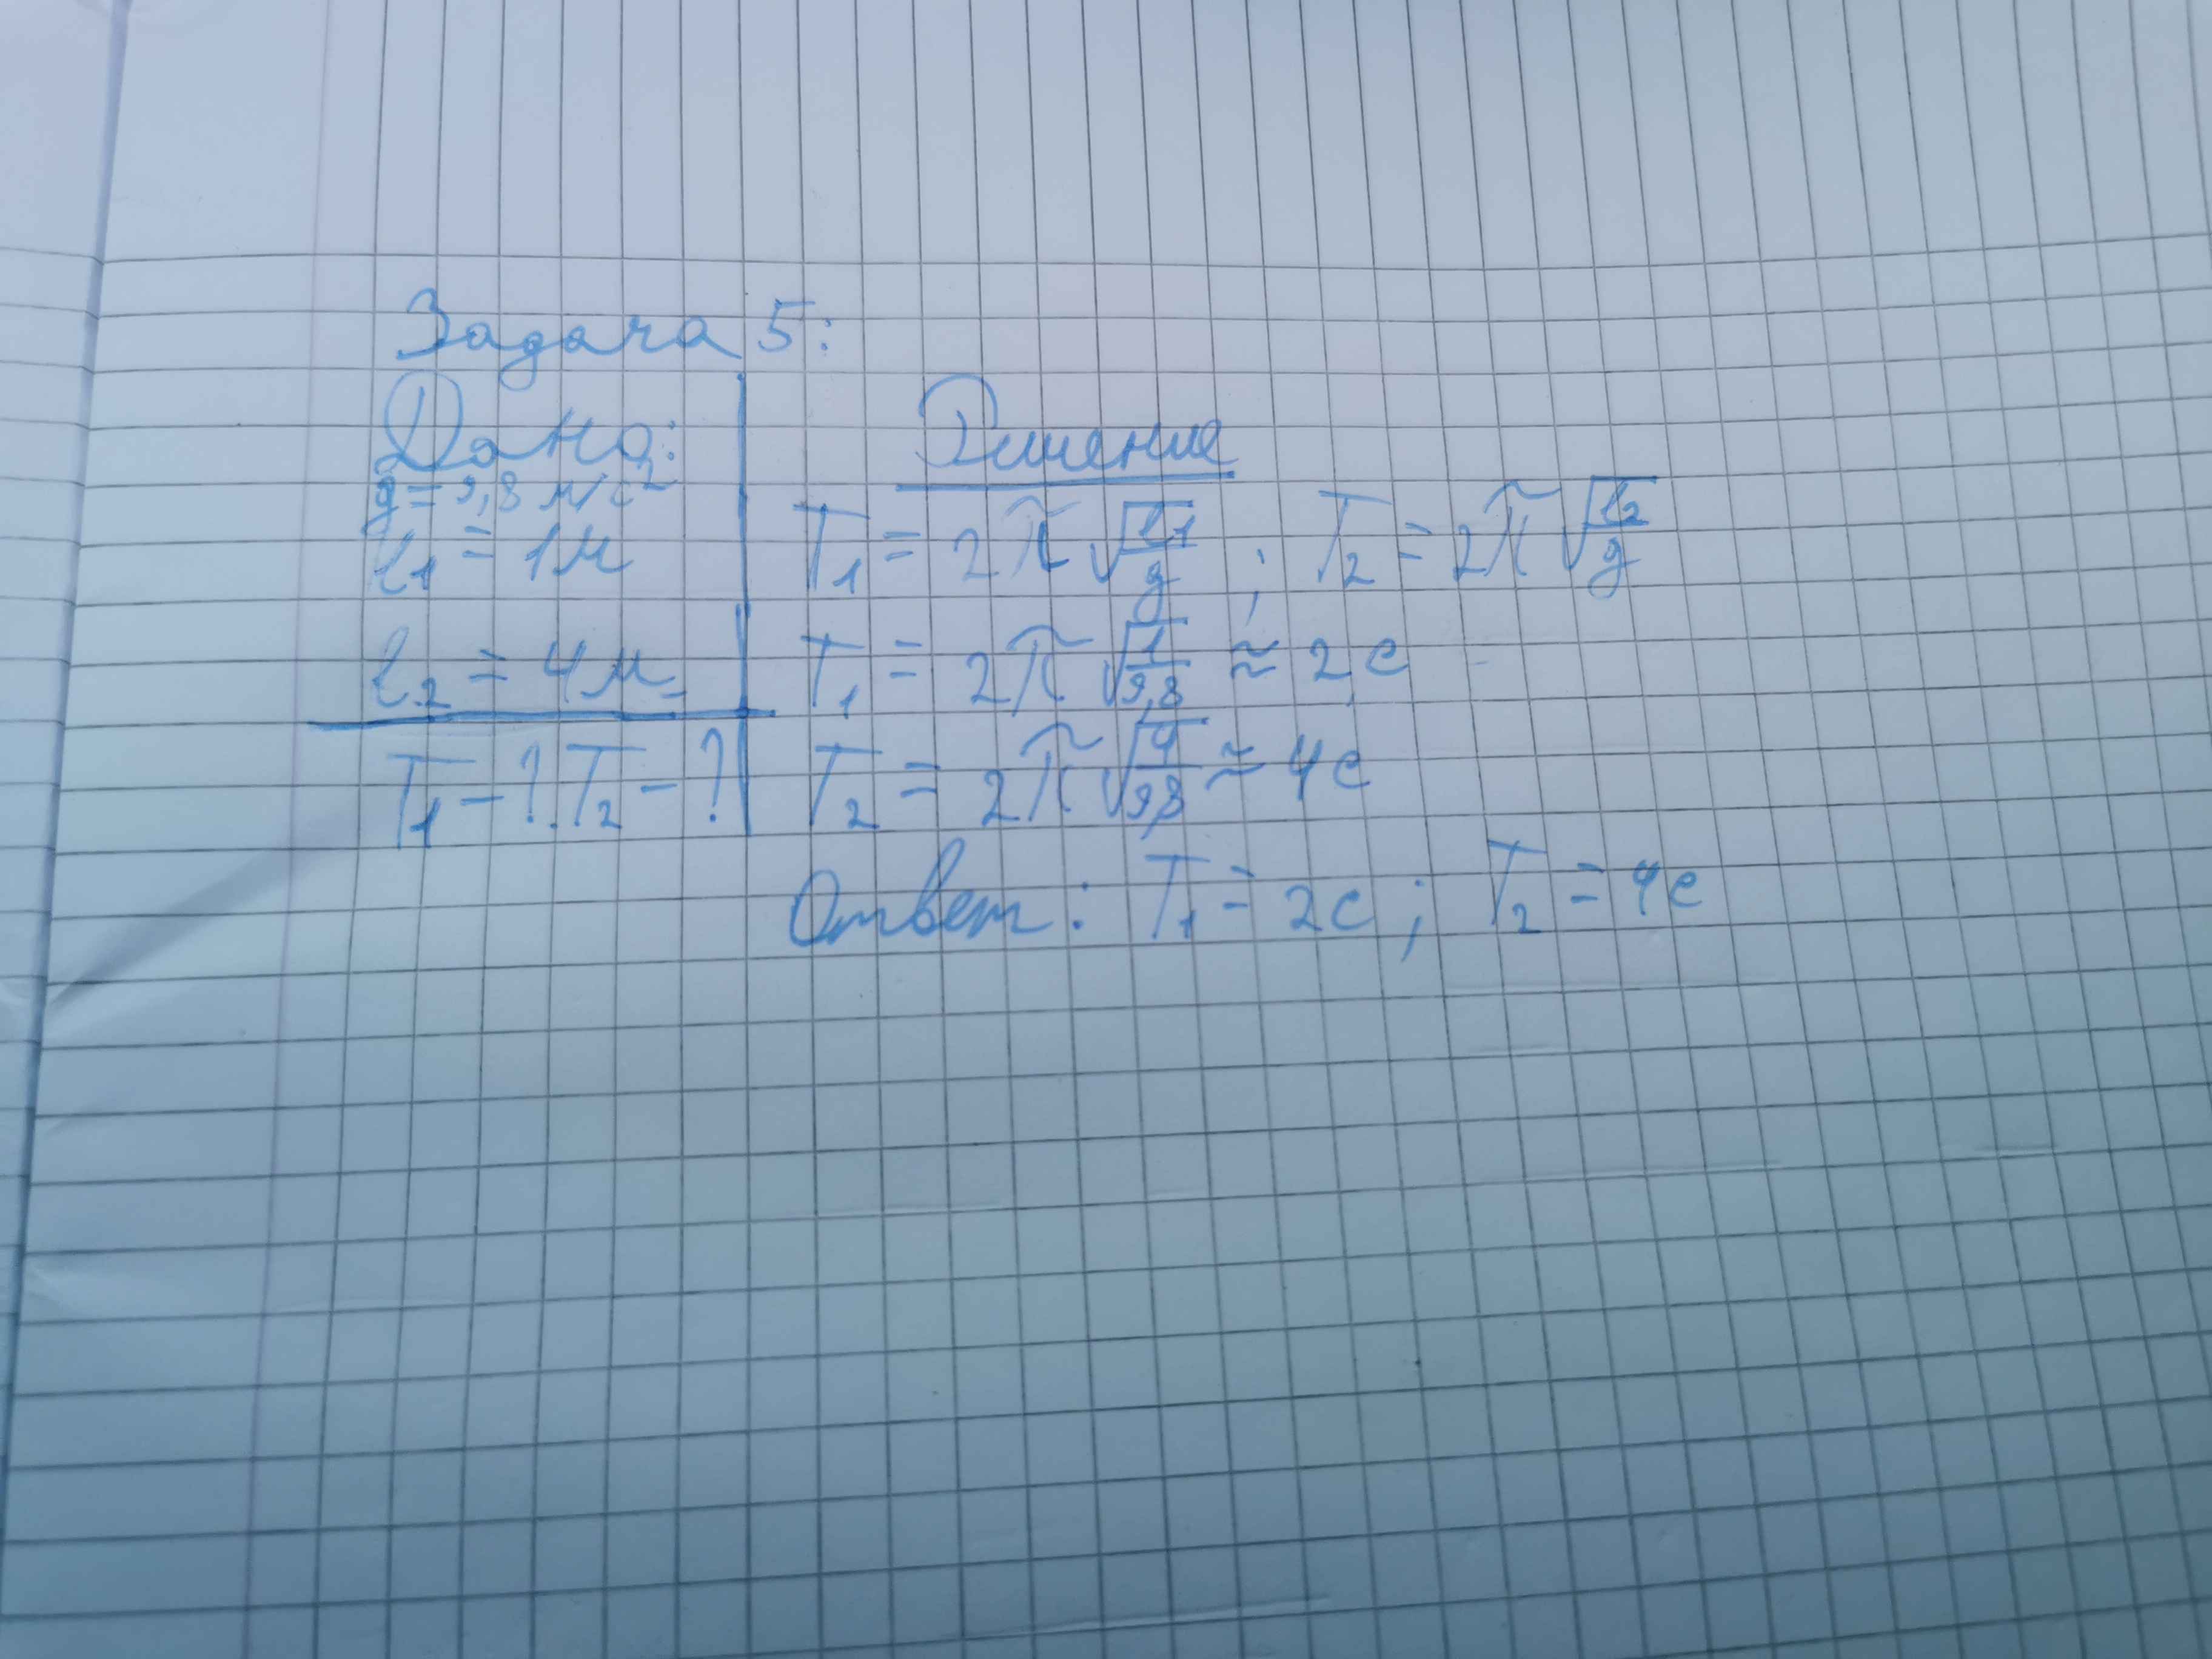 Задача 5:
Дано:
g = 9,8 м/с²
l₁ = 1м
l₂ = 4м
T₁ - ? T₂ - ?
Решение
T₁ = 2π√(l₁/g) ; T₂ = 2π√(l₂/g)
T₁ = 2π√(1/9,8) ≈ 2 с
T₂ = 2π√(4/9,8) ≈ 4с
Ответ: T₁ = 2с ; T₂ = 4с